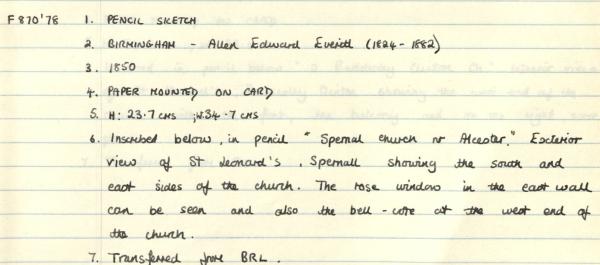 F870'78 1. PENCIL SKETCH
2. BIRMINGHAM - Allen Edward Everitt (1824-1882)
3. 1850
4. PAPER MOUNTED ON CARD
5. H: 23.7 CMS , W.34.7 CMS
6. Inscribed below, in pencil "Spernal church nr Alcester." Exterior
view of St Leonard's, Spernall showing the south and
east sides of the church. The rose window in the east wall
can be seen and also the bell-cote at the west end of
the church.
7. Transferred from BRL.